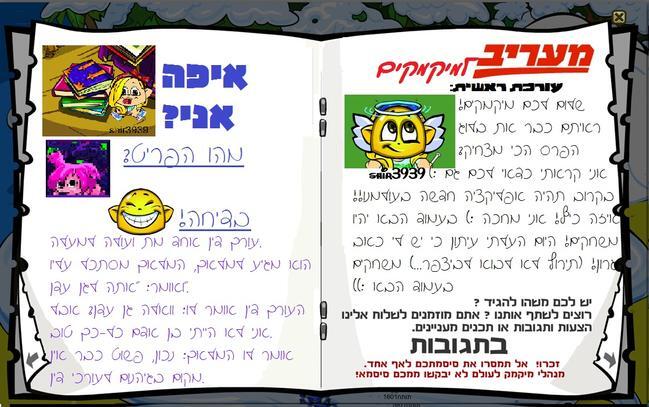 מעריב
למיקמקים
עורכת ראשית:
שלום לכם מיקמקים!
ראיתם כבר את בלוג
הפרס הכי מצחיק?
sHiR3939
אני קראתי כדאי לכם גם :)
בקרוב תהיה אפליקציה חדשה בעולמנו!!
איזה כיף! אני מחכה :) בעמוד הבא יהיו
משחקים! היום העלתי עיתון כי יש לי כאב
גרון! (תירוץ לא לבוא לביצפר...) משחקים
בעמוד הבא :))
יש לכם משהו להגיד ?
רוצים לשתף אותנו ? אתם מוזמנים לשלוח אלינו
הצעות ותגובות או תכנים מעניינים.
בתגובות
זכרו! אל תמסרו את סיסמתכם לאף אחד.
מנהלי מיקמק לעולם לא יבקשו ממכם סיסמא!
איפה
אני?
sHiR3939
מהו הפריט?
בדיחה!
עורך דין אחד מת ועולה למעלה.
הוא מגיע למלאך, המלאך מסתכל עליו
ואומר: "אתה לגן עדן".
העורך דין אומר לו: וואלה גן עדן? אבל
אני לא הייתי בן אדם כל-כך טוב.
אומר לו המלאך: נכון, פשוט כבר אין
מקום בגיהנום לעורכי דין.